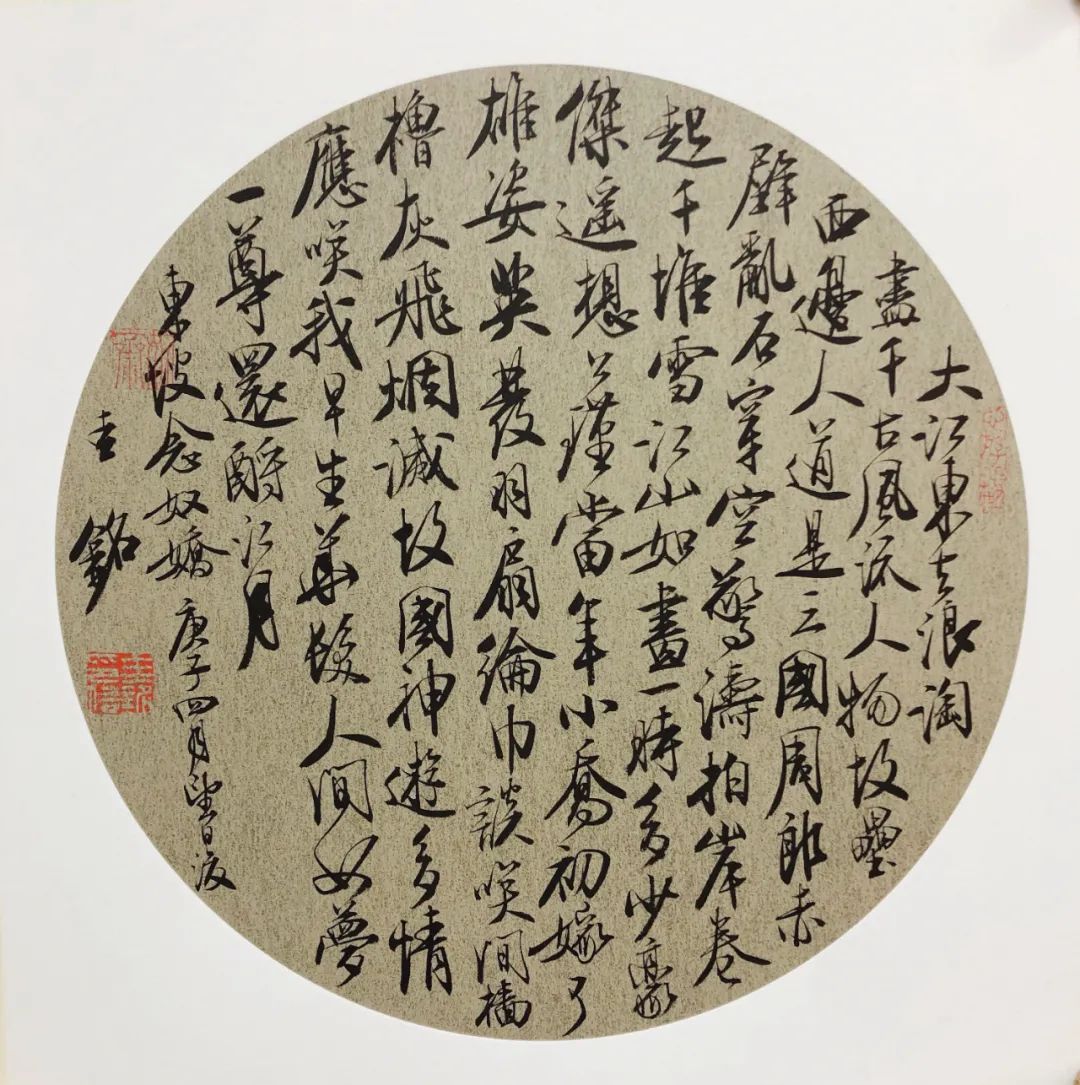 大江東去浪淘
盡千古風流人物故壘
西邊人道是三國周郎赤
壁亂石穿空驚濤拍岸卷
起千堆雪江山如畫一時多少豪
傑遥想公瑾當年小喬初嫁了
雄姿英發羽扇綸巾談咲間檣
櫓灰飛烟滅故國神遊多情
應咲我早生華髮人間如夢
一尊還酹江月
東坡念奴嬌 庚子四月望日
銘